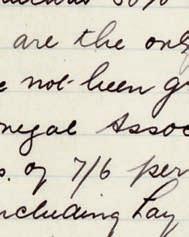 50%
are the only
not been g
negal Assoc
s. of 7/6 per
ncluding Lay